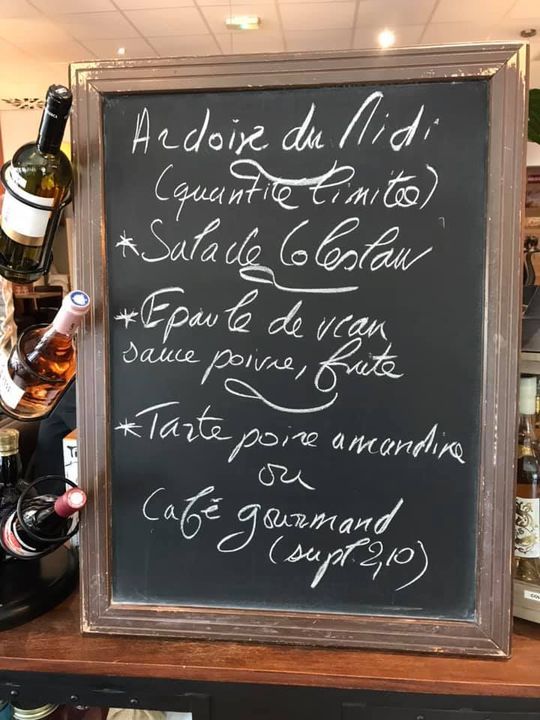 Ardoise du Midi
(quantité limitée)
* Salade Coleslaw
* Epaule de veau
sauce poivre, frite
* Tarte poire amandine
ou
Café gourmand
(supl. 2,10)